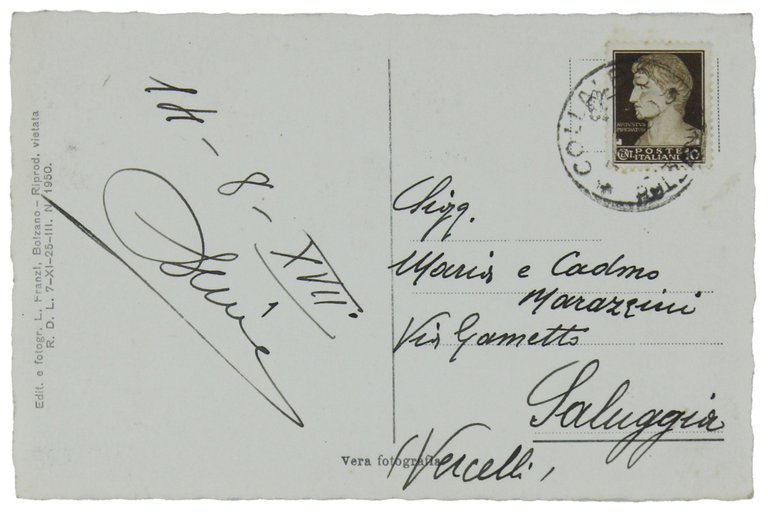 Edit. e fotogr. L. Franzl, Bolzano – Riprod. vietata
R. D. L. 7-XI-25-III. N. 1950.
14 - 8 - XVIII.
Vera fotografia
AVGVSTVS
POSTE
ITALIANE
10
COLLA
Sigg.
Maria e Cadmo
Marazzini
Via Gametto
Saluggia
(Vercelli,